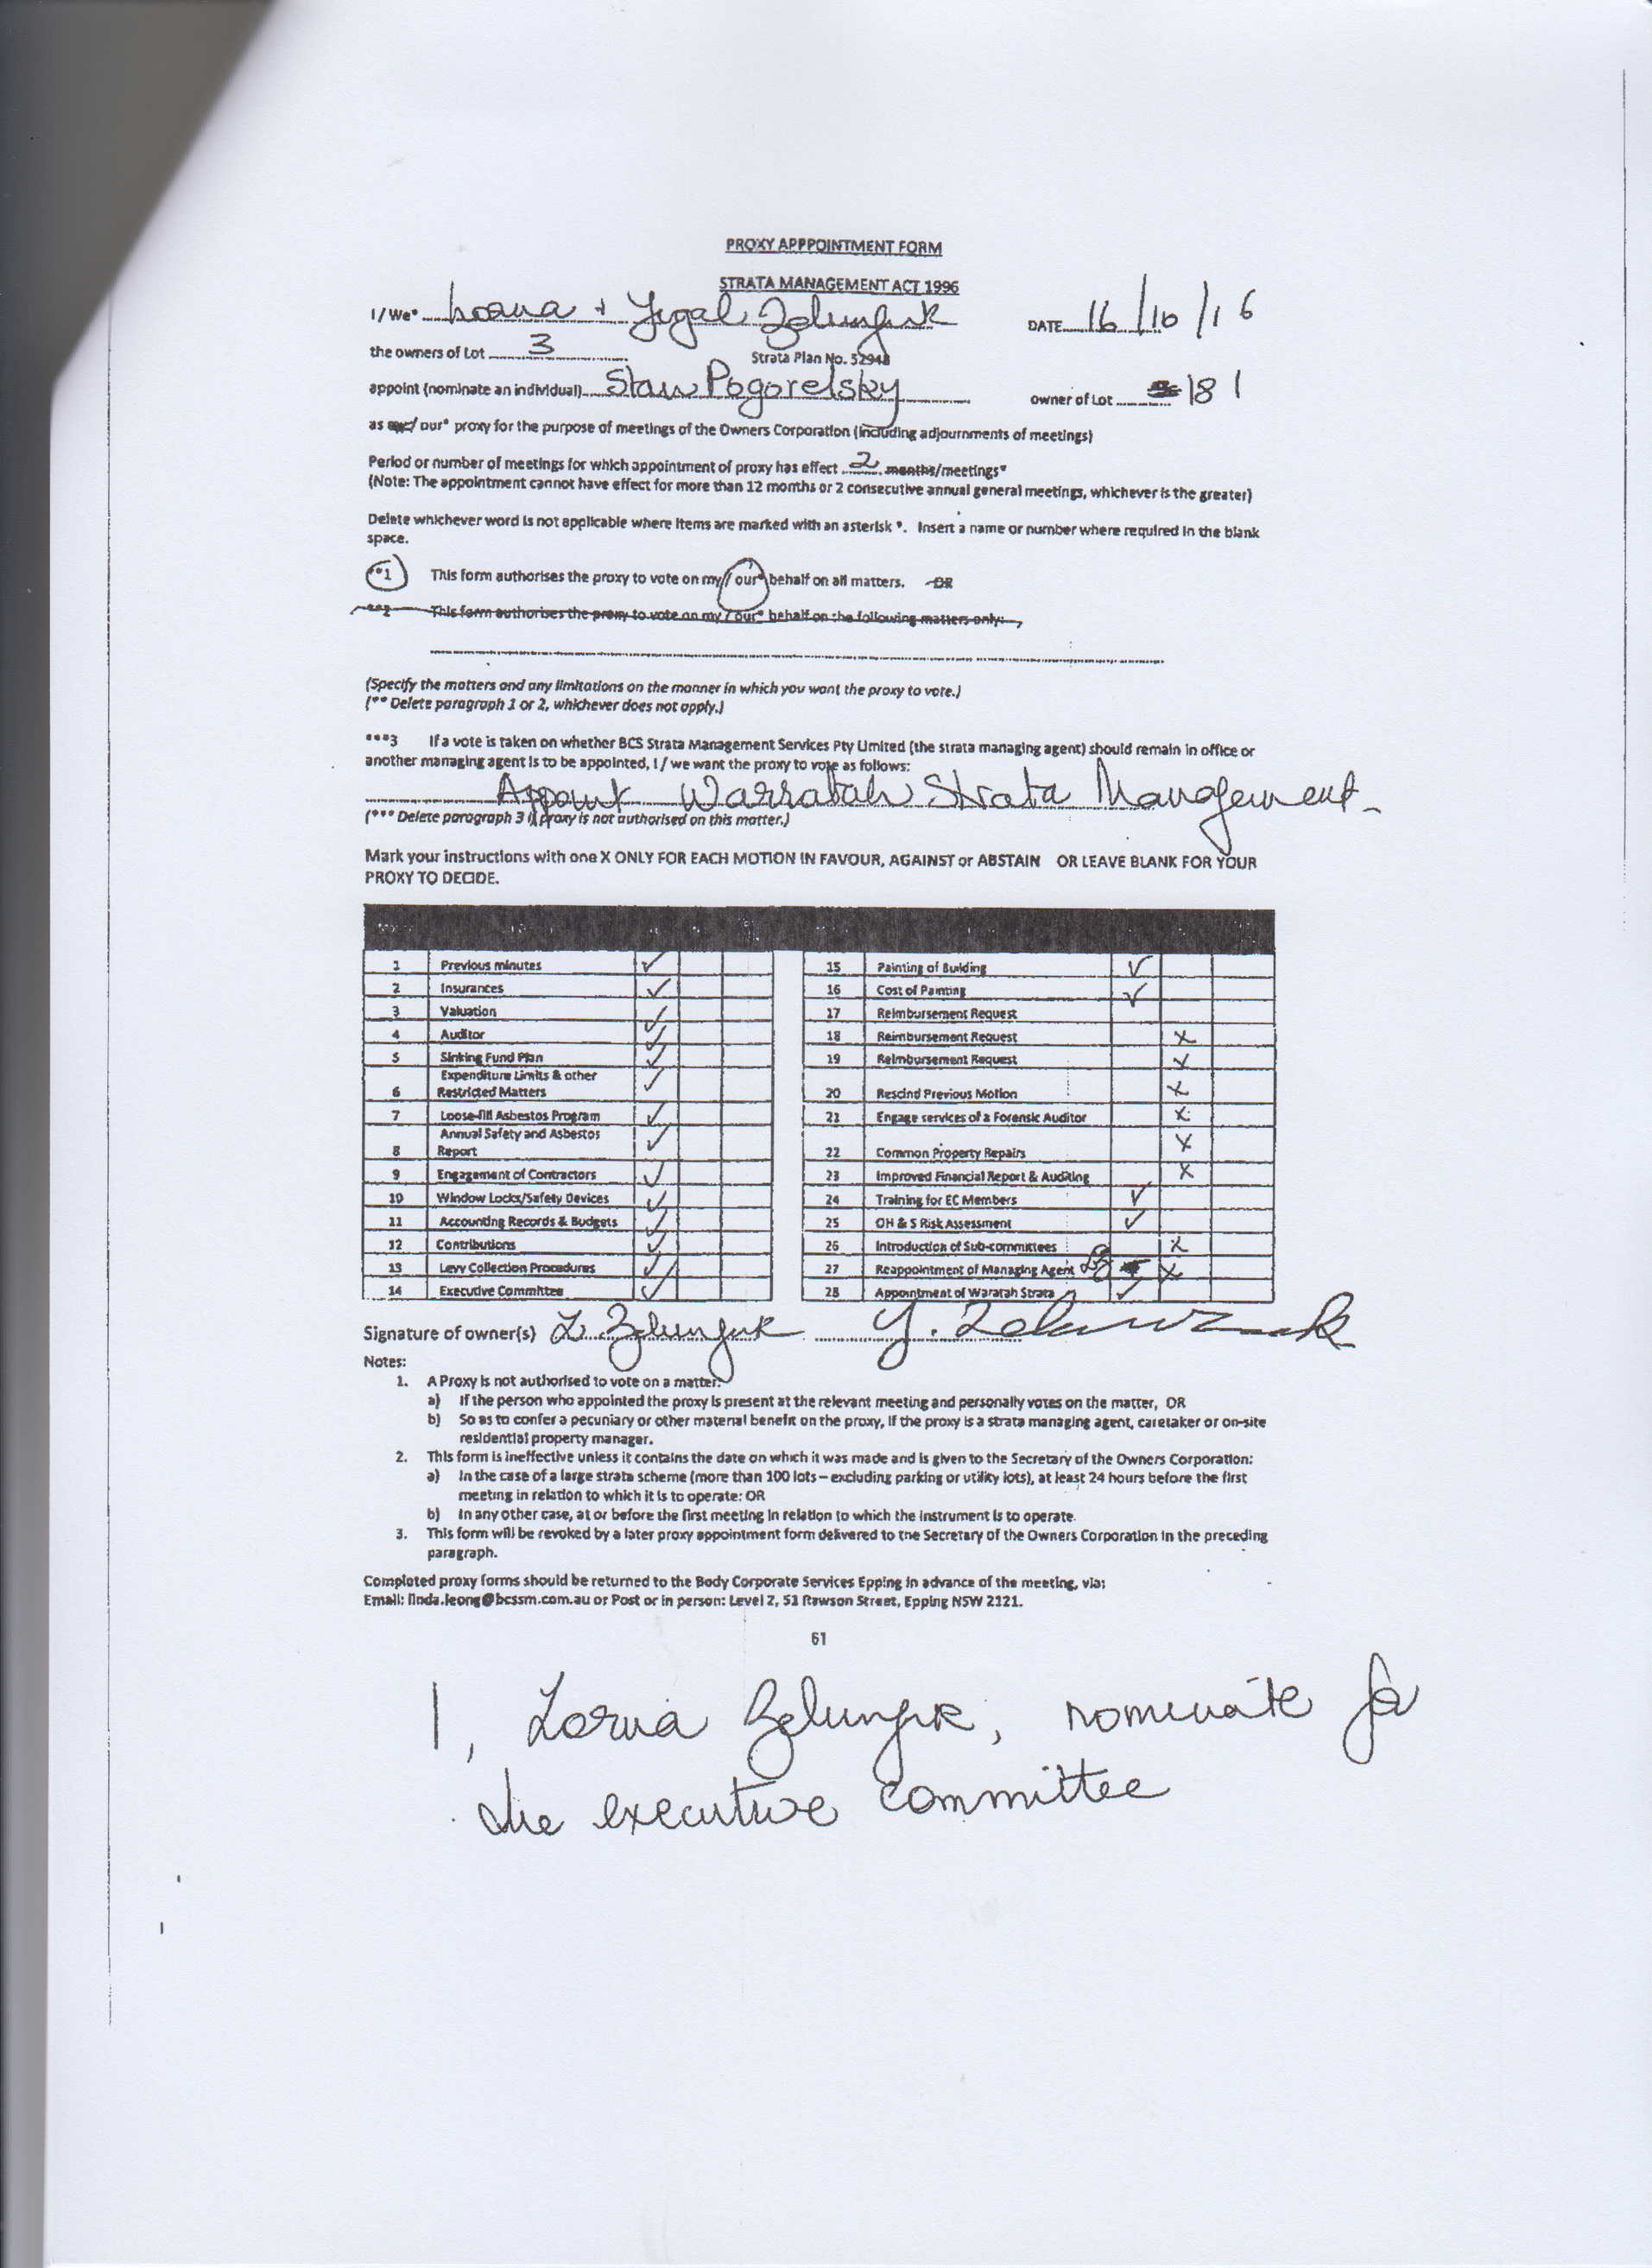 PROXY APPPOINTMENT FORM
STRATA MANAGEMENT ACT 1996
I / We* & Yigal DATE 16/10/16
the owners of Lot 3 Strata Plan No. 52948
appoint (nominate an individual) Stan Pogorelsky owner of Lot 181
as my/ our* proxy for the purpose of meetings of the Owners Corporation (including adjournments of meetings)
Period or number of meetings for which appointment of proxy has effect 2 months/meetings*
(Note: The appointment cannot have effect for more than 12 months or 2 consecutive annual general meetings, whichever is the greater)
Delete whichever word is not applicable where items are marked with an asterisk *. Insert a name or number where required in the blank
space.
**1 This form authorises the proxy to vote on my / our* behalf on all matters. OR
**2 This form authorises the proxy to vote on my / our* behalf on the following matters only:
(Specify the matters and any limitations on the manner in which you want the proxy to vote.)
(** Delete paragraph 1 or 2, whichever does not apply.)
***3 If a vote is taken on whether BCS Strata Management Services Pty Limited (the strata managing agent) should remain in office or
another managing agent is to be appointed, I / we want the proxy to vote as follows:
Appoint Warratah Strata Management
(*** Delete paragraph 3 if proxy is not authorised on this matter.)
Mark your instructions with one X ONLY FOR EACH MOTION IN FAVOUR, AGAINST or ABSTAIN OR LEAVE BLANK FOR YOUR
PROXY TO DECIDE.
1 Previous minutes ✓ 15 Painting of Building ✓
2 Insurances ✓ 16 Cost of Painting ✓
3 Valuation ✓ 17 Reimbursement Request
4 Auditor ✓ 18 Reimbursement Request X
5 Sinking Fund Plan ✓ 19 Reimbursement Request X
Expenditure Limits & other
6 Restricted Matters ✓ 20 Rescind Previous Motion X
7 Loose-fill Asbestos Program ✓ 21 Engage services of a Forensic Auditor X
Annual Safety and Asbestos
8 Report ✓ 22 Common Property Repairs X
9 Engagement of Contractors ✓ 23 Improved Financial Report & Auditing X
10 Window Locks/Safety Devices ✓ 24 Training for EC Members ✓
11 Accounting Records & Budgets ✓ 25 OH & S Risk Assessment ✓
12 Contributions ✓ 26 Introduction of Sub-committees X
13 Levy Collection Procedures ✓ 27 Reappointment of Managing Agent X
14 Executive Committee ✓ 28 Appointment of Waratah Strata ✓
Signature of owner(s)
Notes:
1. A Proxy is not authorised to vote on a matter:
a) If the person who appointed the proxy is present at the relevant meeting and personally votes on the matter, OR
b) So as to confer a pecuniary or other material benefit on the proxy, if the proxy is a strata managing agent, caretaker or on-site
residential property manager.
2. This form is ineffective unless it contains the date on which it was made and is given to the Secretary of the Owners Corporation:
a) In the case of a large strata scheme (more than 100 lots – excluding parking or utility lots), at least 24 hours before the first
meeting in relation to which it is to operate: OR
b) In any other case, at or before the first meeting in relation to which the instrument is to operate.
3. This form will be revoked by a later proxy appointment form delivered to the Secretary of the Owners Corporation in the preceding
paragraph.
Completed proxy forms should be returned to the Body Corporate Services Epping in advance of the meeting, via:
Email: linda.leong@bcssm.com.au or Post or in person: Level 2, 51 Rawson Street, Epping NSW 2121.
61
I, Lorna , nominate for
the executive committee